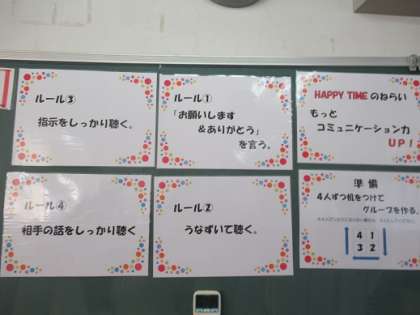 ルール③
指示をしっかり聴く。
ルール①
「お願いします
&ありがとう」
を言う。
HAPPY TIMEのねらい
もっと
コミュニケーション力
UP!
ルール④
相手の話をしっかり聴く
ルール②
うなずいて聴く。
準備
4人ずつ机をつけて
グループを作る。
4 1
3 2